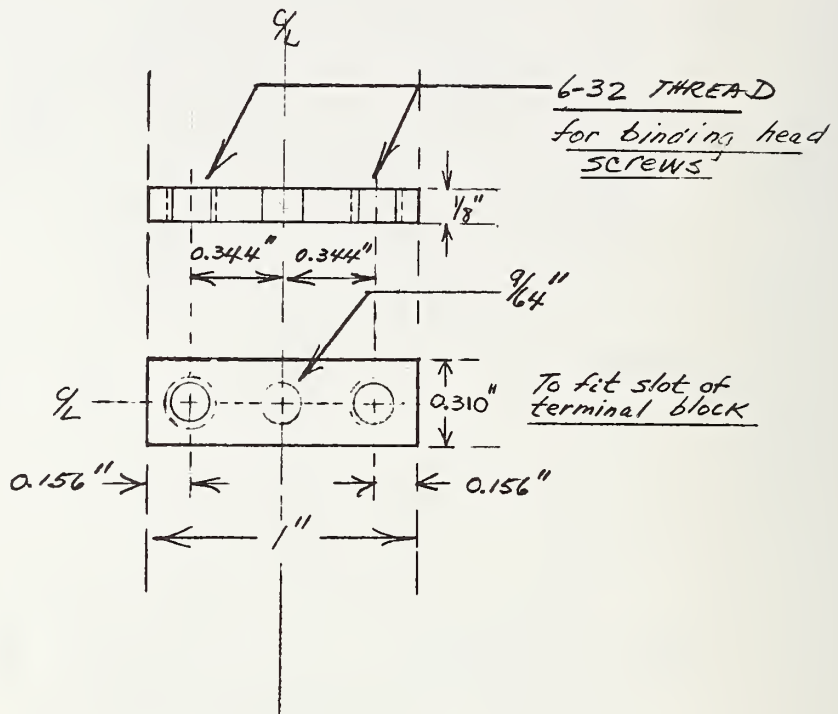 ℄
6-32 THREAD
for binding head
screws
1/8"
0.344" 0.344"
9/64"
℄
0.310"
To fit slot of
terminal block
0.156"
0.156"
1"